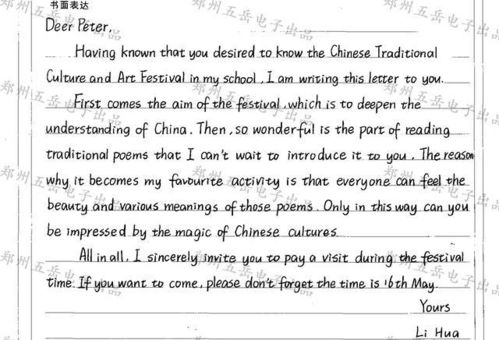 书面表达
Deer Peter,
Having known that you desired to know the Chinese Traditional
Culture and Art Festival in my school, I am writing this letter to you.
First comes the aim of the festival, which is to deepen the
understanding of China. Then, so wonderful is the part of reading
traditional poems that I can't wait to introduce it to you. The reason
why it becomes my favourite activity is that everyone can feel the
beauty and various meanings of those poems. Only in this way can you
be impressed by the magic of Chinese cultures.
All in all, I sincerely invite you to pay a visit during the festival
time. If you want to come, please don't forget the time is 16th May.
Yours
Li Hua
郑州五岳电子出品